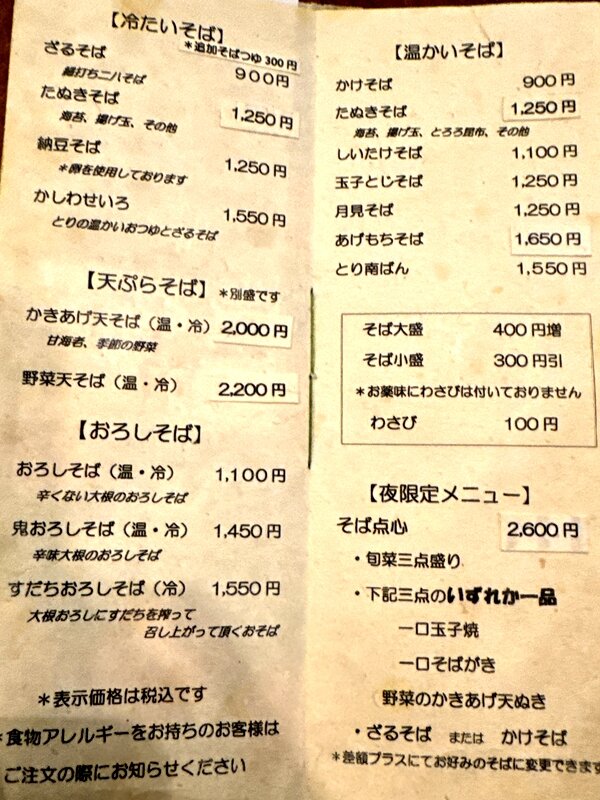 【冷たいそば】
＊追加そばつゆ300円
ざるそば 900円
細打ち二八そば
たぬきそば 1,250円
海苔、揚げ玉、その他
納豆そば 1,250円
＊卵を使用しております
かしわせいろ 1,550円
とりの温かいおつゆとざるそば
【天ぷらそば】＊別盛です
かきあげ天そば（温・冷） 2,000円
甘海老、季節の野菜
野菜天そば（温・冷） 2,200円
【おろしそば】
おろしそば（温・冷） 1,100円
辛くない大根のおろしそば
鬼おろしそば（温・冷） 1,450円
辛味大根のおろしそば
すだちおろしそば（冷） 1,550円
大根おろしにすだちを搾って
召し上がって頂くおそば
＊表示価格は税込です
＊食物アレルギーをお持ちのお客様は
ご注文の際にお知らせください
【温かいそば】
かけそば 900円
たぬきそば 1,250円
海苔、揚げ玉、とろろ昆布、その他
しいたけそば 1,100円
玉子とじそば 1,250円
月見そば 1,250円
あげもちそば 1,650円
とり南ばん 1,550円
そば大盛 400円増
そば小盛 300円引
＊お薬味にわさびは付いておりません
わさび 100円
【夜限定メニュー】
そば点心 2,600円
・旬菜三点盛り
・下記三点のいずれか一品
一口玉子焼
一口そばがき
野菜のかきあげ天ぬき
・ざるそば または かけそば
＊差額プラスにてお好みのそばに変更できます